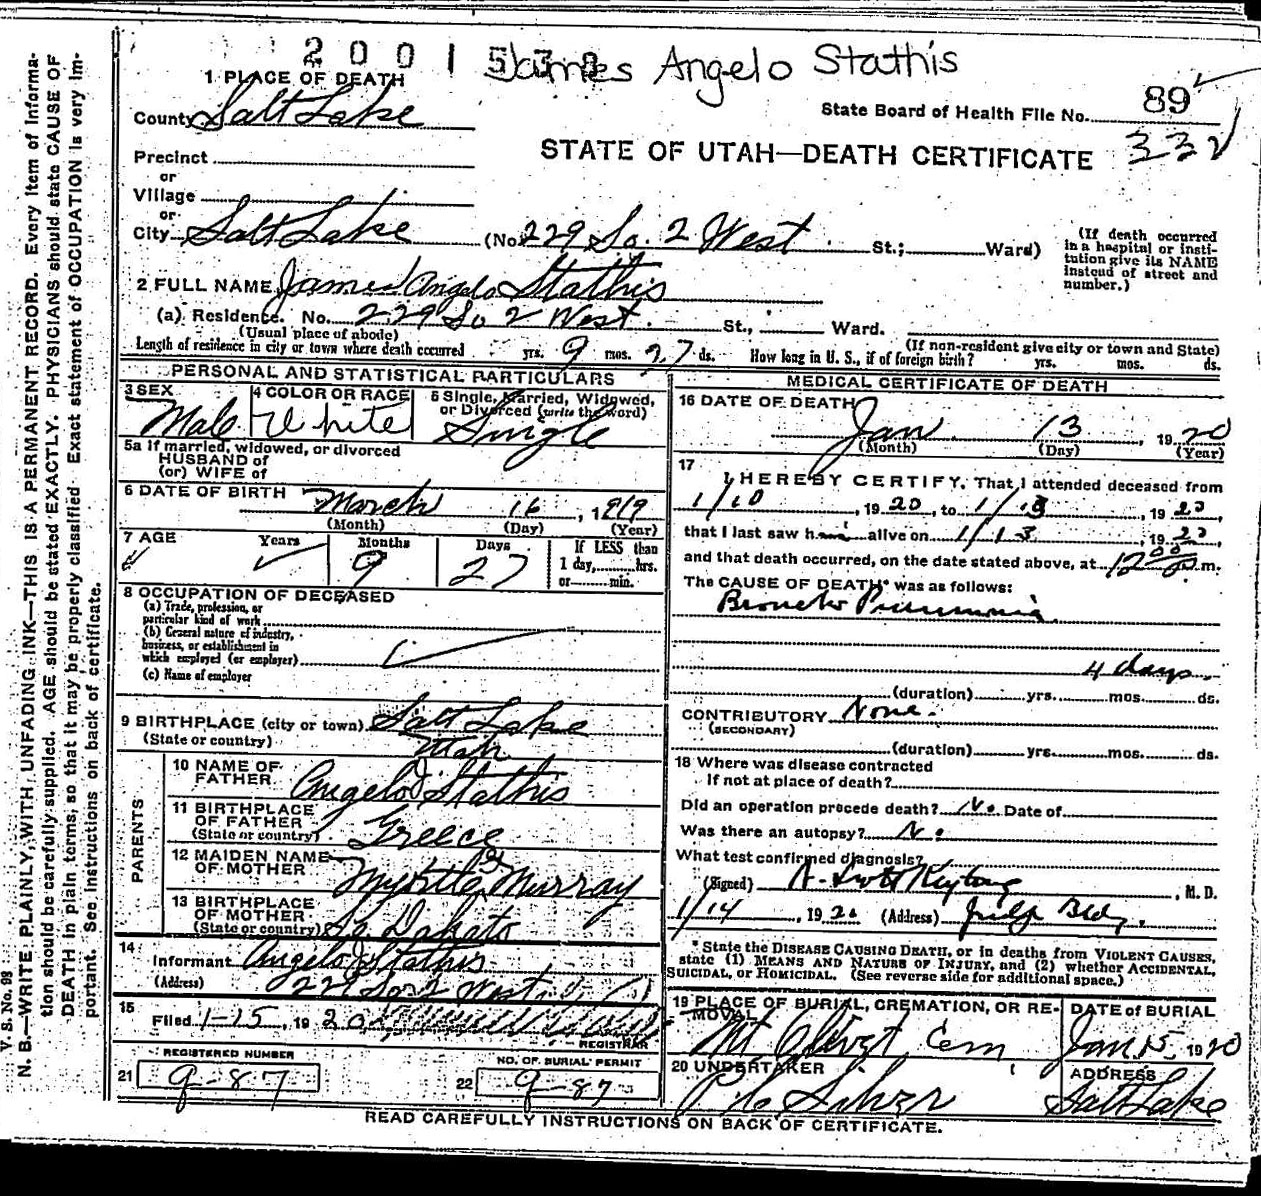 2001538
James Angelo Stathis
1 PLACE OF DEATH
County Salt Lake
State Board of Health File No. 89
332
STATE OF UTAH—DEATH CERTIFICATE
Precinct
or
Village
or
City Salt Lake (No. 229 So. 2 West. St.; Ward)
(If death occurred in a hospital or insti-
tution give its NAME
instead of street and
number.)
2 FULL NAME James Angelo Stathis
(a) Residence. No. 229 So 2 West. St., Ward.
(Usual place of abode)
(If non-resident give city or town and State)
Length of residence in city or town where death occurred yrs. 9 mos. 27 ds. How long in U. S., if of foreign birth? yrs. mos. ds.
PERSONAL AND STATISTICAL PARTICULARS
3 SEX
Male
4 COLOR OR RACE
White
5 Single, Married, Widowed,
or Divorced (write the word)
Single
5a If married, widowed, or divorced
HUSBAND of
(or) WIFE of
6 DATE OF BIRTH
March 16, 1919
(Month) (Day) (Year)
7 AGE Years Months Days
9 27
If LESS than
1 day, hrs.
or min.
8 OCCUPATION OF DECEASED
(a) Trade, profession, or
particular kind of work
(b) General nature of industry,
business, or establishment in
which employed (or employer)
(c) Name of employer
9 BIRTHPLACE (city or town) Salt Lake
(State or country) Utah
PARENTS
10 NAME OF
FATHER Angelo J Stathis
11 BIRTHPLACE
OF FATHER
(State or country) Greece
12 MAIDEN NAME
OF MOTHER Myrtle Murray
13 BIRTHPLACE
OF MOTHER
(State or country) So Dakato
14
Informant Angelo J Stathis
(Address) 229 So 2 West
15
Filed 1-15, 1920
REGISTRAR
REGISTERED NUMBER
21 9-87
NO. OF BURIAL PERMIT
22 9-87
MEDICAL CERTIFICATE OF DEATH
16 DATE OF DEATH
Jan. 13, 1920
(Month) (Day) (Year)
17
I HEREBY CERTIFY, That I attended deceased from
1/10, 1920, to 1/13, 1920,
that I last saw him alive on 1/13, 1920,
and that death occurred, on the date stated above, at 12 00 m.
The CAUSE OF DEATH* was as follows:
Broncho Pneumonia
4 days.
(duration) yrs. mos. ds.
CONTRIBUTORY None.
(SECONDARY)
(duration) yrs. mos. ds.
18 Where was disease contracted
If not at place of death?
Did an operation precede death? No. Date of
Was there an autopsy? No
What test confirmed diagnosis?
(Signed) M. D.
1/14, 1920 (Address) Bldg.
*State the DISEASE CAUSING DEATH, or in deaths from VIOLENT CAUSES,
state (1) MEANS AND NATURE OF INJURY, and (2) whether ACCIDENTAL,
SUICIDAL, or HOMICIDAL. (See reverse side for additional space.)
19 PLACE OF BURIAL, CREMATION, OR RE-
MOVAL
Mt Olivet Cem
DATE of BURIAL
Jan. 15, 1920
20 UNDERTAKER
ADDRESS
Salt Lake
READ CAREFULLY INSTRUCTIONS ON BACK OF CERTIFICATE.
V. S. No. 98
N. B.—WRITE PLAINLY, WITH UNFADING INK—THIS IS A PERMANENT RECORD. Every item of informa-
tion should be carefully supplied. AGE should be stated EXACTLY. PHYSICIANS should state CAUSE OF
DEATH in plain terms, so that it may be properly classified. Exact statement of OCCUPATION is very im-
portant. See instructions on back of certificate.